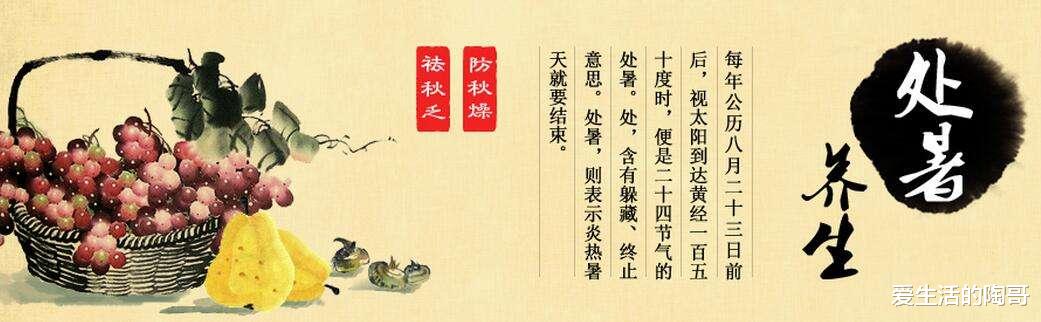 处暑
养生
每年公历八月二十三日前
后，视太阳到达黄经一百五
十度时，便是二十四节气的
处暑。处，含有躲藏、终止
意思。处暑，则表示炎热暑
天就要结束。
防秋燥
祛秋乏
爱生活的陶哥